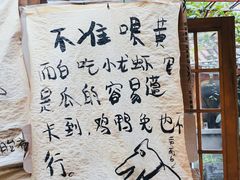 不准喂黄
白吃小龙虾
是瓜的容易遭
卡到,鸡鸭兔也不
行。